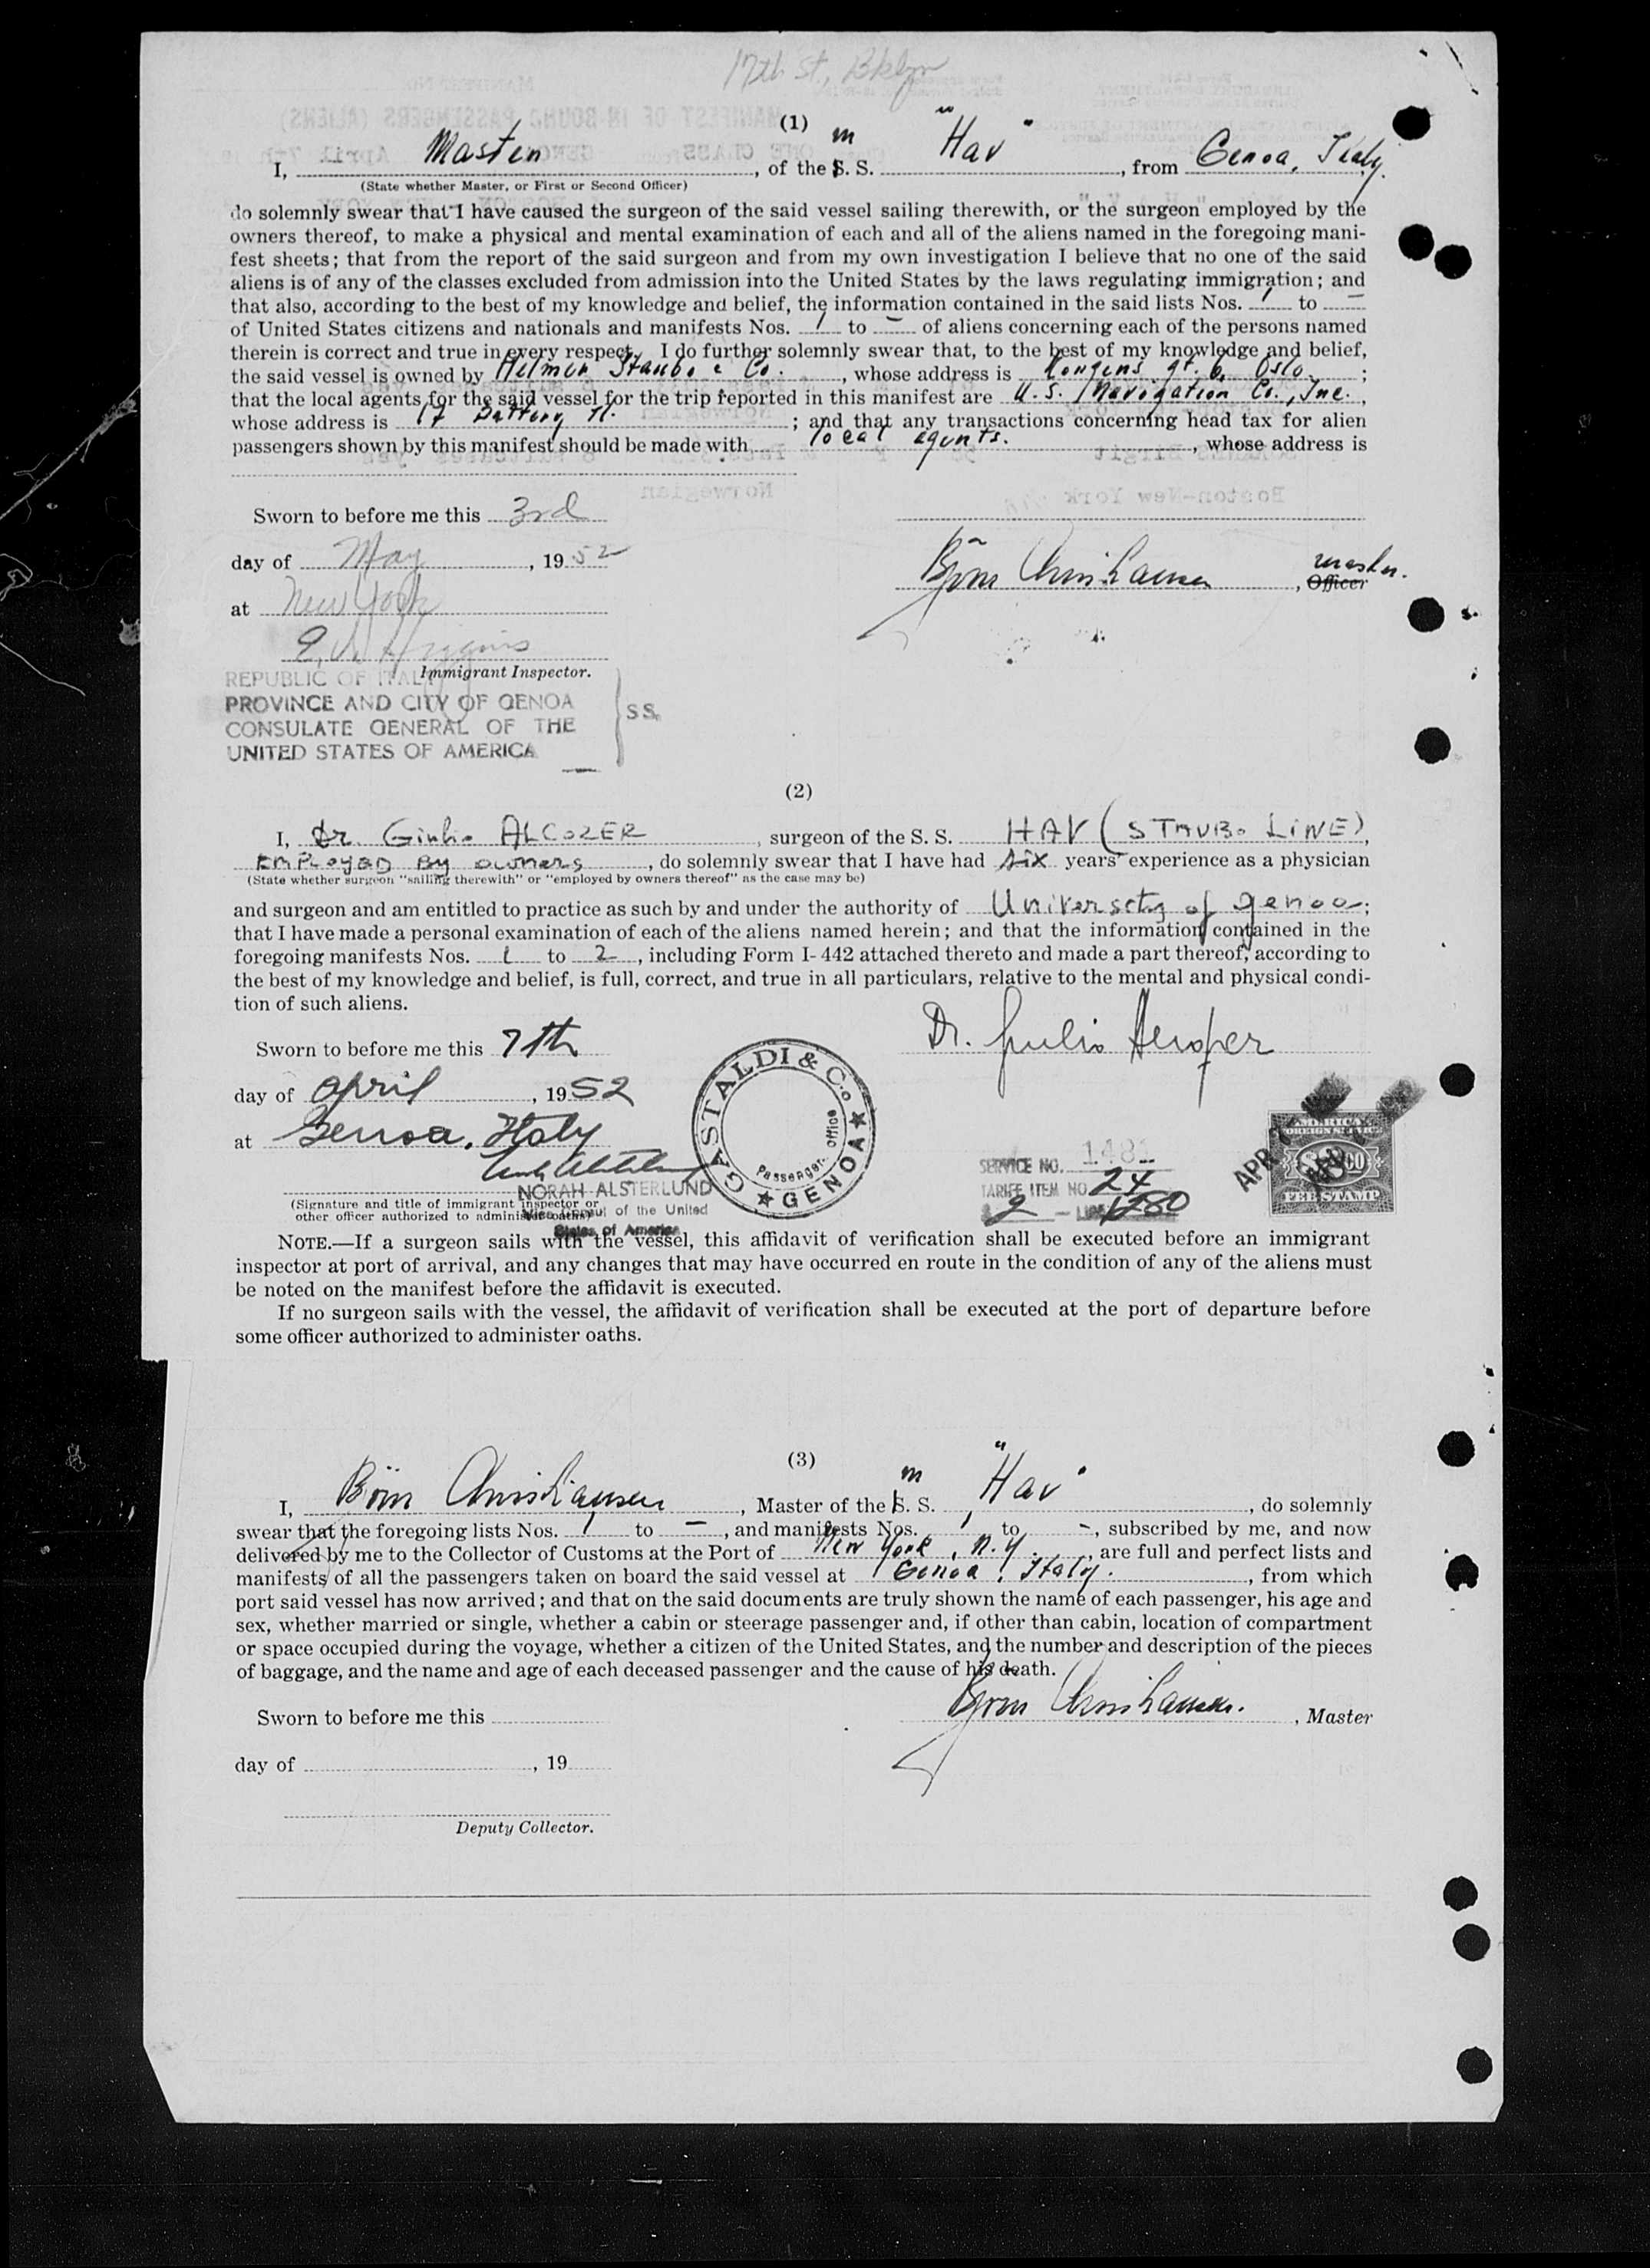 17th St., Bklyn
(1)
I, Master, of the M. S. "Hav", from Genoa, Italy.
(State whether Master, or First or Second Officer)
do solemnly swear that I have caused the surgeon of the said vessel sailing therewith, or the surgeon employed by the
owners thereof, to make a physical and mental examination of each and all of the aliens named in the foregoing mani-
fest sheets; that from the report of the said surgeon and from my own investigation I believe that no one of the said
aliens is of any of the classes excluded from admission into the United States by the laws regulating immigration; and
that also, according to the best of my knowledge and belief, the information contained in the said lists Nos. 1 to –
of United States citizens and nationals and manifests Nos. 1 to – of aliens concerning each of the persons named
therein is correct and true in every respect. I do further solemnly swear that, to the best of my knowledge and belief,
the said vessel is owned by Helmer Staubo & Co., whose address is Kongens gt. 6, Oslo;
that the local agents for the said vessel for the trip reported in this manifest are U. S. Navigation Co., Inc.,
whose address is 17 Battery Pl.; and that any transactions concerning head tax for alien
passengers shown by this manifest should be made with local agents., whose address is
Sworn to before me this 3rd
day of May, 1952
at New York
Immigrant Inspector.
master.
Officer
REPUBLIC OF ITALY
PROVINCE AND CITY OF GENOA
CONSULATE GENERAL OF THE
UNITED STATES OF AMERICA
SS.
(2)
I, Dr. Giulio ALCOZER, surgeon of the S. S. HAV (STAUBO LINE),
EMPLOYED BY owners, do solemnly swear that I have had six years experience as a physician
(State whether surgeon "sailing therewith" or "employed by owners thereof" as the case may be)
and surgeon and am entitled to practice as such by and under the authority of University of genoa;
that I have made a personal examination of each of the aliens named herein; and that the information contained in the
foregoing manifests Nos. 1 to 2, including Form I-442 attached thereto and made a part thereof, according to
the best of my knowledge and belief, is full, correct, and true in all particulars, relative to the mental and physical condi-
tion of such aliens.
Sworn to before me this 7th
Dr. Giulio Alcozer
day of April, 1952
at Genoa, Italy
GASTALDI & Co.
Passenger Office
GENOA
SERVICE NO. 1481
TARIFF ITEM NO. 24
$ 2 – Lire 1280
AMERICAN
FOREIGN SERVICE
$2.00
FEE STAMP
APR
NORAH ALSTERLUND
Vice Consul of the United
States of America
(Signature and title of immigrant inspector or
other officer authorized to administer oaths)
NOTE.—If a surgeon sails with the vessel, this affidavit of verification shall be executed before an immigrant
inspector at port of arrival, and any changes that may have occurred en route in the condition of any of the aliens must
be noted on the manifest before the affidavit is executed.
If no surgeon sails with the vessel, the affidavit of verification shall be executed at the port of departure before
some officer authorized to administer oaths.
(3)
I, Björn Christiansen, Master of the M. S. "Hav", do solemnly
swear that the foregoing lists Nos. 1 to –, and manifests Nos. 1 to –, subscribed by me, and now
delivered by me to the Collector of Customs at the Port of New York, N.Y., are full and perfect lists and
manifests of all the passengers taken on board the said vessel at Genoa, Italy., from which
port said vessel has now arrived; and that on the said documents are truly shown the name of each passenger, his age and
sex, whether married or single, whether a cabin or steerage passenger and, if other than cabin, location of compartment
or space occupied during the voyage, whether a citizen of the United States, and the number and description of the pieces
of baggage, and the name and age of each deceased passenger and the cause of his death.
Sworn to before me this
, Master
day of , 19
Deputy Collector.